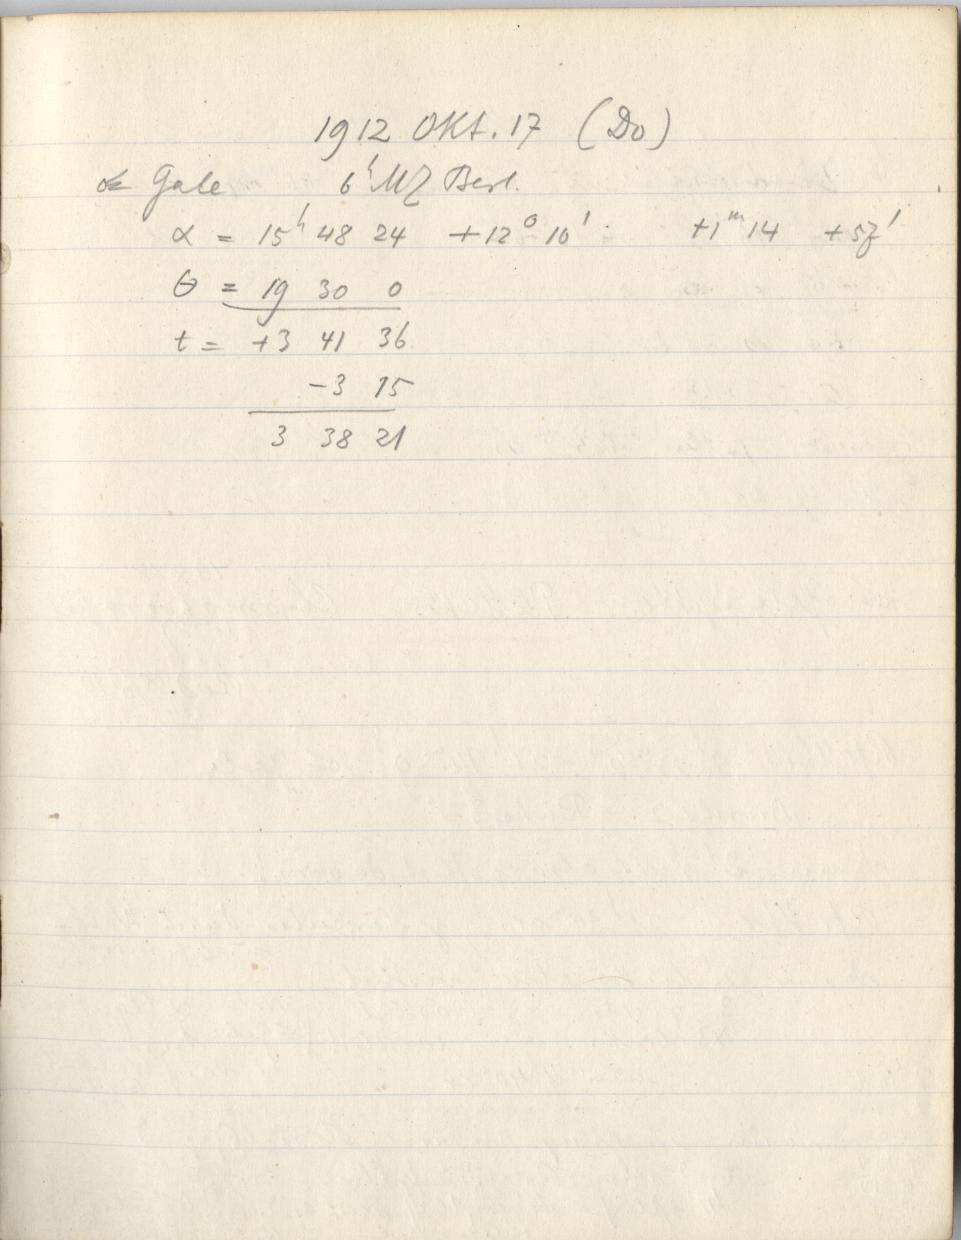 1912 OKt. 17 (Do)
Gale 6ʰ MZ Berl.
α = 15ʰ 48 24 +12° 10' +1ᵐ 14 +57'
θ = 19 30 0
t = +3 41 36
-3 15
3 38 21